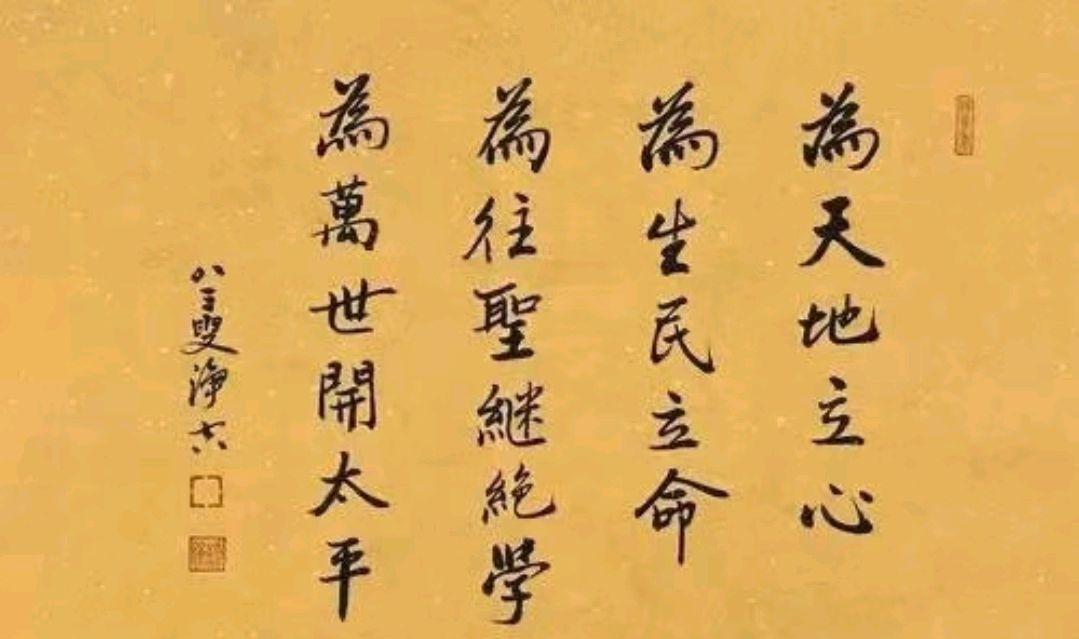 為天地立心
為生民立命
為往聖継絶學
為萬世開太平
八三叟淨空